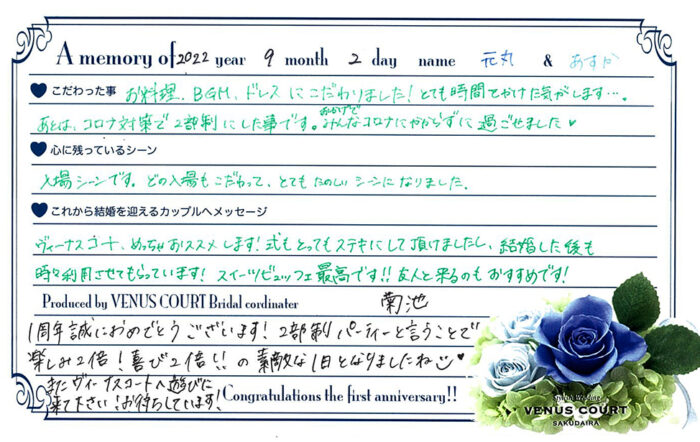 A memory of 2022 year 9 month 2 day name 元丸 & あすか
こだわった事 お料理、BGM、ドレスにこだわりました!とても時間をかけた気がします…。
あとは、コロナ対策で2部制にした事です。おかげでみんなコロナにかからずに過ごせました♥
心に残っているシーン
入場シーンです。どの入場もこだわって、とてもたのしいシーンになりました。
これから結婚を迎えるカップルへメッセージ
ヴィーナスコート、めっちゃおススメします!式もとってもステキにして頂けましたし、結婚した後も
時々利用させてもらっています!スイーツビュッフェ最高です!!友人と来るのもおすすめです!
Produced by VENUS COURT Bridal cordinater 菊池
1周年誠におめでとうございます!2部制パーティーと言うことで
楽しみ2倍!喜び2倍!!の素敵な1日となりましたね♥
またヴィーナスコートへ遊びに
来て下さい!お待ちしています! Congratulations the first anniversary!!
VENUS COURT
SAKUDAIRA